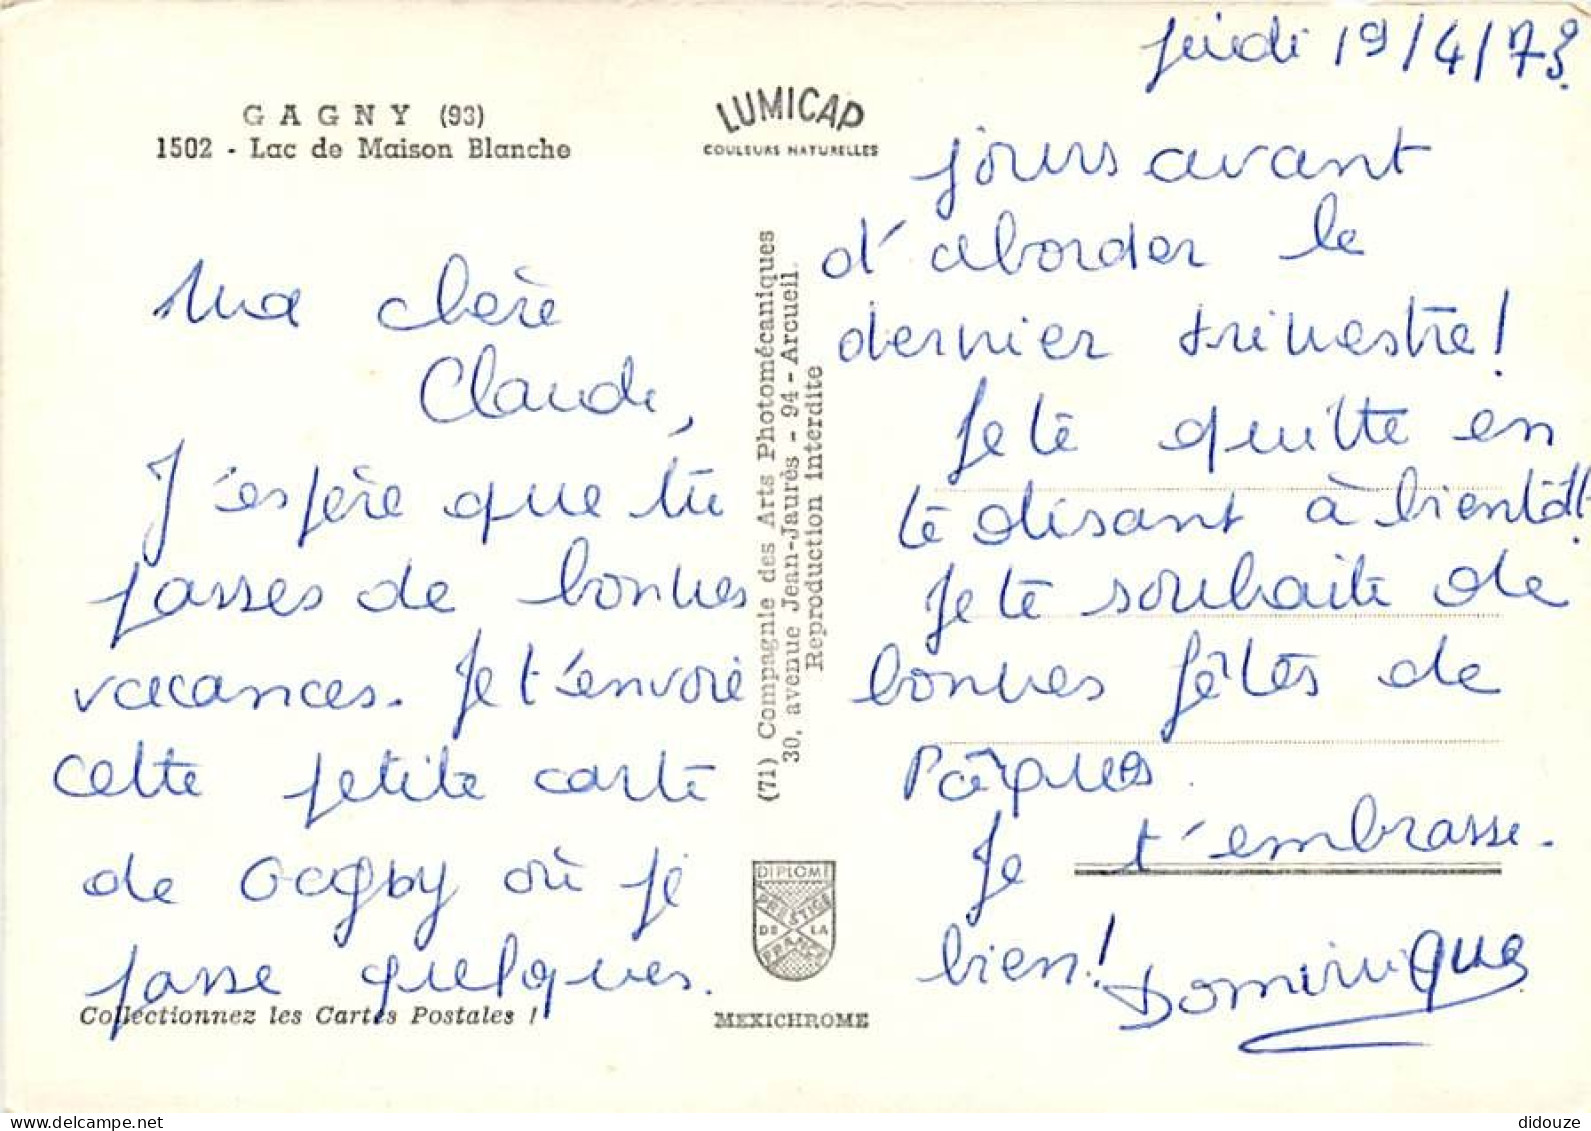 GAGNY (93)
1502 - Lac de Maison Blanche
LUMICAP
COULEURS NATURELLES
Ma chère
Claude,
J'espère que tu
passes de bonnes
vacances. Je t'envoie
cette petite carte
de Gagny où je
passe quelques
Collectionnez les Cartes Postales !
(71) Compagnie des Arts Photomécaniques
30, avenue Jean-Jaurès - 94 - Arcueil
Reproduction interdite
DIPLOME
PRESTIGE
DE LA
FRANCE
MEXICHROME
jeudi 19/4/73
jours avant
d'aborder le
dernier trimestre!
Je te quitte en
te disant à bientôt!
Je te souhaite de
bonnes fêtes de
Pâques.
Je t'embrasse.
bien! Dominique
didouze